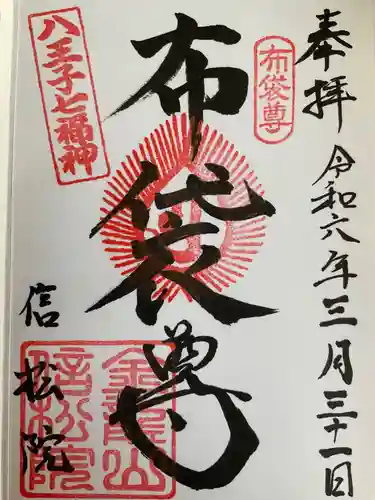 奉拝
令和六年三月三十一日
布袋尊
布袋尊
八王子七福神
信松院
金龍山
信松院